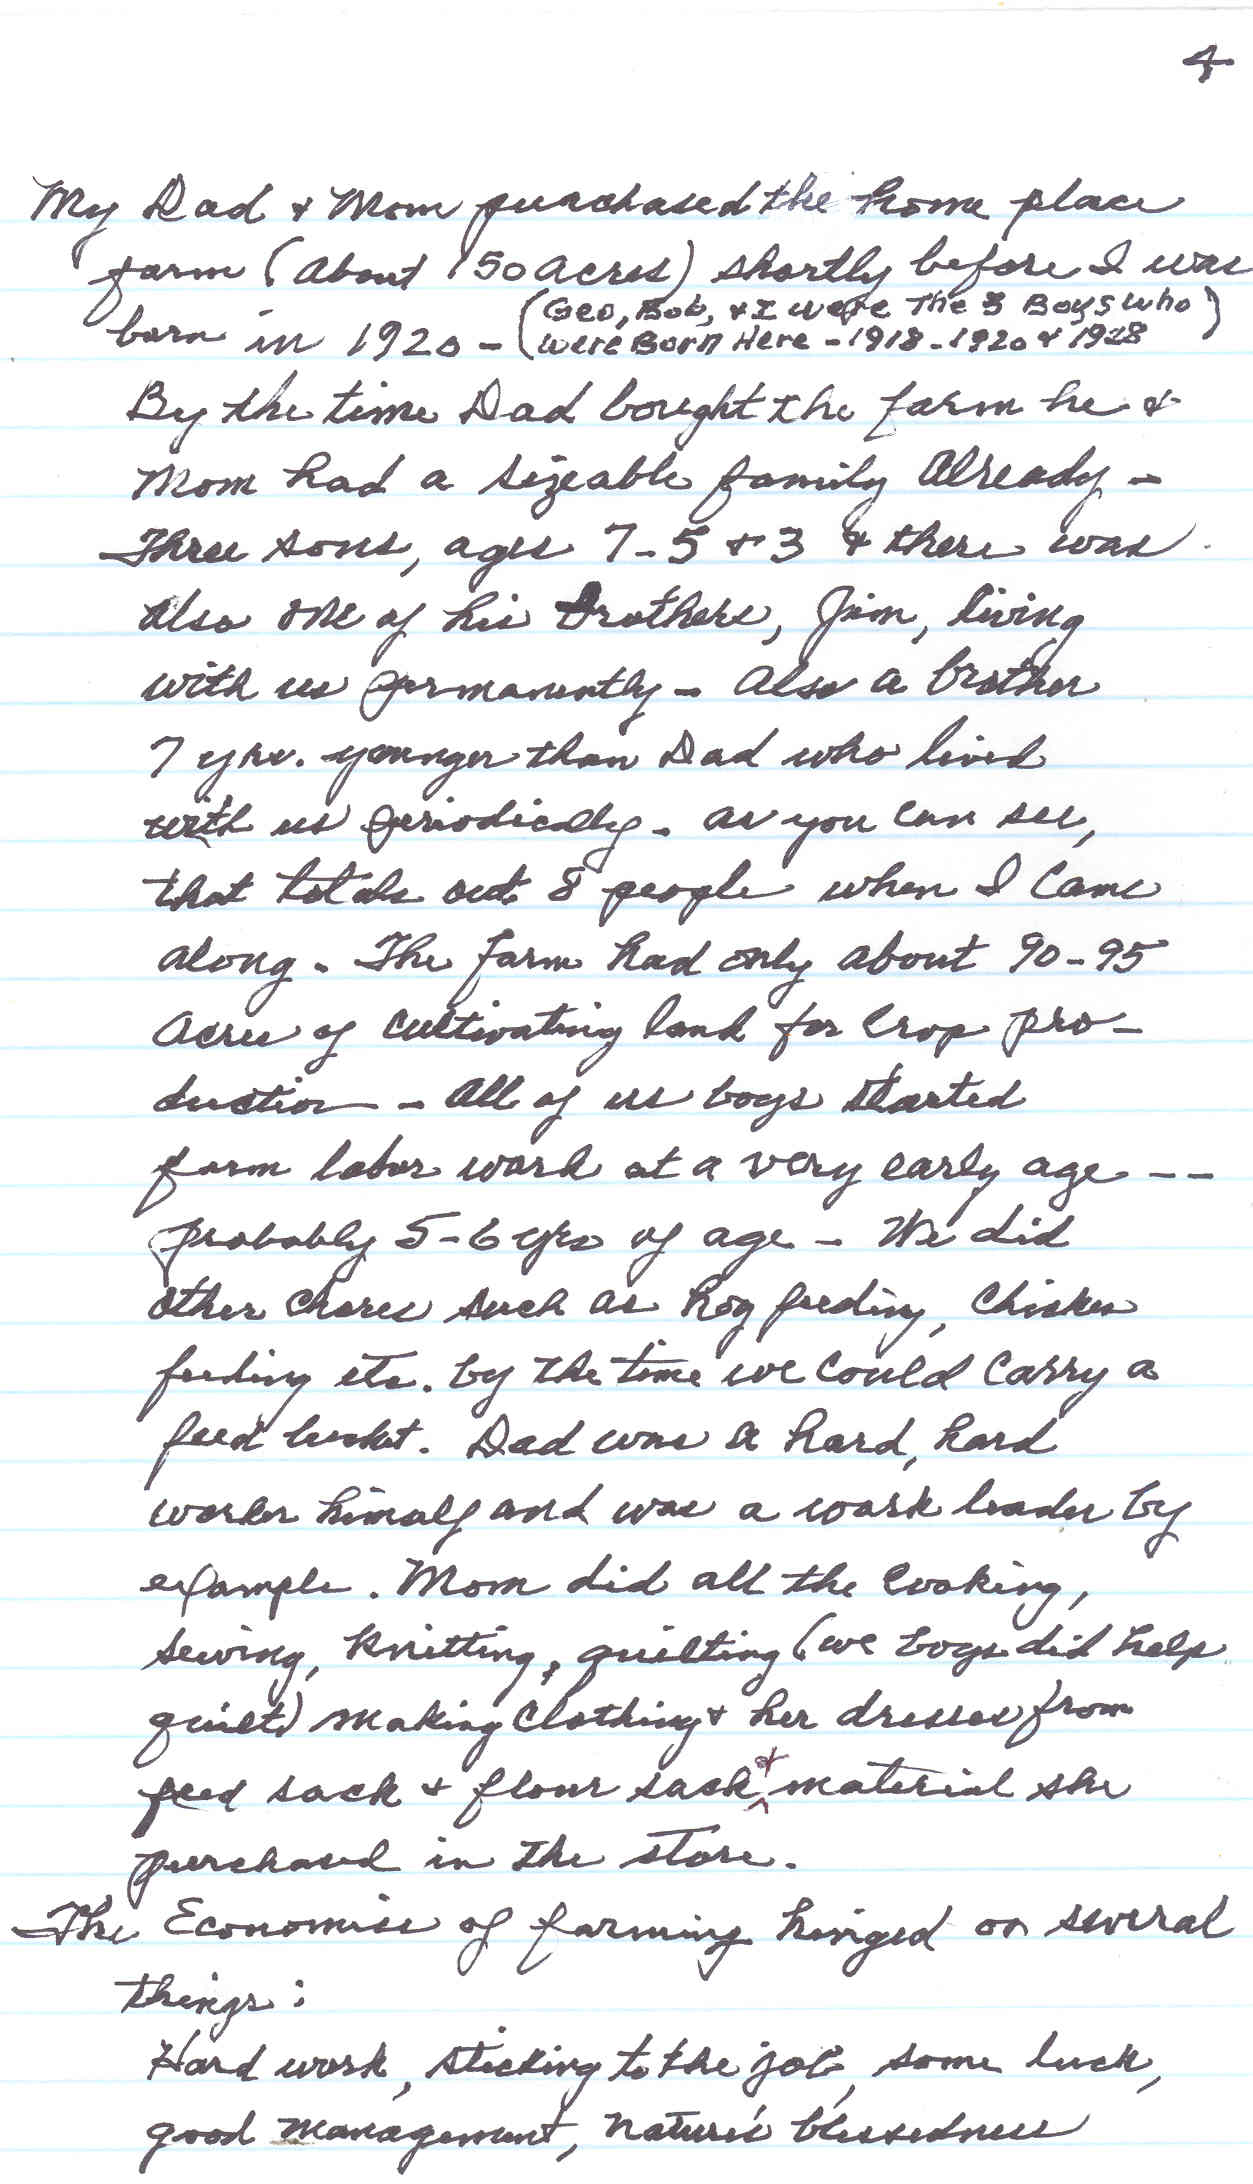 4
My Dad & Mom purchased the home place
farm (about 150 acres) shortly before I was
born in 1920 - (Geo, Bob, & I were The 3 Boys who
were Born Here - 1918 - 1920 & 1928)
By the time Dad bought the farm he &
Mom had a sizeable family already -
Three sons, ages 7-5 & 3 & there was
also one of his brothers, Jim, living
with us permanently - also a brother
7 yrs. younger than Dad who lived
with us periodically - as you can see,
that totals out 8 people when I came
along. The farm had only about 90-95
acres of cultivating land for crop pro-
duction - All of us boys started
farm labor work at a very early age --
probably 5-6 yrs of age - We did
other chores such as hog feeding, chicken
feeding etc. by the time we could carry a
feed bucket. Dad was a hard, hard
worker himself and was a work leader by
example. Mom did all the cooking,
sewing, knitting, quilting (we boys did help
quilt) making clothing & her dresses from
feed sack & flour sack & material she
purchased in the store.
The Economics of farming hinged on several
things:
Hard work, sticking to the job, some luck,
good management, nature's blessedness